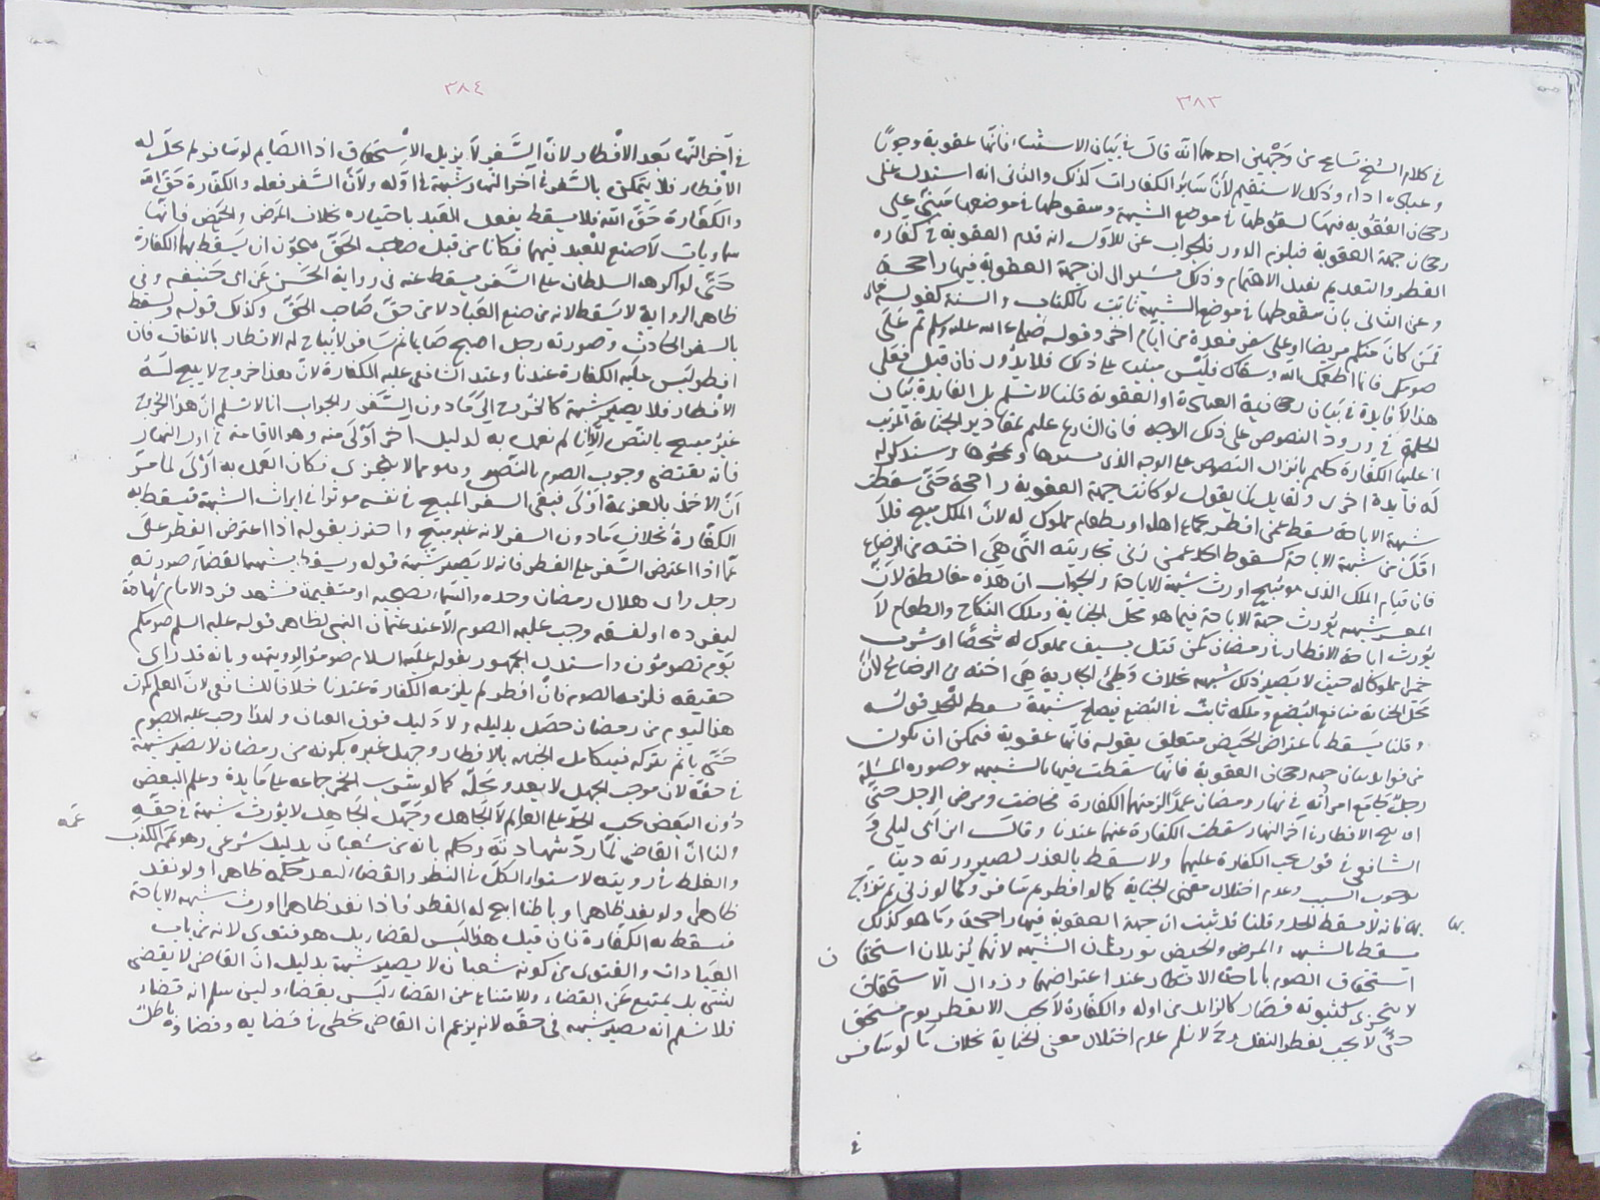 ٣٨٣
في كلام الشيخ تسامح من وجهين احدهما انه قال في بيان الاستثناء فانها عقوبة وجوبًا
وعبادة اداء وذلك لا يستقيم لان سائر الكفارات كذلك والثاني انه استدل على
رجحان العقوبة فيها لسقوطها في موضع الشبهة وسقوطها في موضعها مبني على
رجحان جهة العقوبة فيلزم الدور فالجواب عن الاول انه قدم العقوبة في كفارة
الفطر والتقديم يفيد الاهتمام وذلك مشير الى ان جهة العقوبة فيها راجحة
وعن الثاني بان سقوطها في موضع الشبهة ثابت بالكتاب والسنة كقوله تعالى
فمن كان منكم مريضا او على سفر فعدة من ايام اخر وقوله صلى الله عليه وسلم تم على
صومك فانما اطعمك الله وسقاك فليس مبنيا على ذلك فلا يدور فان قيل فعلى
هذا لا فايدة في بيان رجحانية العبادة او العقوبة قلنا لا نسلم بل الفايدة بيان
الحكمة في ورود النصوص على ذلك الوجه فان الشارع عليم بمقادير الجناية المرتب
عليها الكفارة حكيم بانزال النصوص على الوجه الذي
له فايدة اخرى ولقايل ان يقول لو كانت جهة العقوبة راجحة حتى سقطت
شبهة الاباحة سقط عمن افطر بجماع اهله او بطعام مملوك له لان الملك مبيح فلا
اقل من شبهة الاباحة كسقوط الحد عمن زنى بجاريته التي هي اخته من الرضاع
فان قيام الملك الذي هو مبيح اورث شبهة الاباحة والجواب ان هذه مغالطة لان
المعتبر شبهة تورث جهة الاباحة فيما هو محل الجناية وملك النكاح والطعام لا
يورث اباحة الافطار في رمضان كمن قتل بسيف مملوك له شخصًا او شرب
خمرا مملوكا له حيث لا يصير ذلك شبهة بخلاف وطئ الجارية هي اخته من الرضاع لان
محل الجناية منافع البضع وملكه ثابت في البضع فيصلح شبهة يسقطه للحد قوله
وقلنا يسقط باعتراض الحيض متعلق بقوله فانها عقوبة فيمكن ان يكون
من فوايد بيان جهة رجحان العقوبة فانها سقطت فيها بالشبهة وصورة المسئلة
رجل جامع امراته في نهار رمضان عمدًا لزمتهما الكفارة فحاضت ومرض الرجل حتى
ابيح الافطار في آخر النهار سقطت الكفارة عنهما عندنا وقال ابن ابي ليلى و
الشافعي في قول يجب الكفارة عليهما ولا يسقط بالعذر لصيرورته دينا
بوجوب السبب وعدم اختلال معنى الجناية كما لو افطر ثم سافر وكما لو زنى ثم تزوج
بها فانه لا يسقط الحد وقلنا قد ثبت ان جهة العقوبة فيها راجحة وما هو كذلك
يسقط بالشبهة والمرض والحيض تورثان الشبهة لانهما يزيلان استحقاق
استحقاق الصوم باباحة الافطار عند اعتراضهما وزوال الاستحقاق
لا يتجزى كثبوته فصار كالزايل من اوله والكفارة لا يجب الا بفطر يوم مستحق
حتى لا يجب بفطر النفل وح لا نسلم عدم اختلال معنى الجناية بخلاف ما لو سافر
بها
ن
٤
٣٨٤
في آخر النهار بعد الافطار لان السفر لا يزيل الاستحقاق اذ الصايم لو سافر لم يحل له
الافطار فلا يتمكن بالسفر في آخر النهار شبهة في اوله ولان السفر فعله والكفارة حق الله
والكفارة حق الله فلا يسقط بفعل العبد باختياره بخلاف المرض والحيض فانهما
سماويان لا صنع للعبد فيهما فكانا من قبل صاحب الحق فيجوز ان يسقط بهما الكفارة
حتى لو اكرهه السلطان على السفر يسقط عنه في رواية الحسن عن ابي حنيفه وفي
ظاهر الرواية لا يسقط لانه من صنع العباد لا من حق صاحب الحق وكذلك قوله ويسقط
بالسفر الحادث وصورته رجل اصبح صايما ثم سافر لا يباح له الافطار بالاتفاق فان
افطر ليس عليه الكفارة عندنا وعند الشافعي عليه الكفارة لان هذا خروج لا يبيح له
الافطار فلا يصير شبهة كالخروج الى ما دون السفر والجواب انا لا نسلم ان هذا الخروج
غير مبيح بالنص الا انا لم نعمل به لدليل آخر اولى منه وهو الاقامة في اول النهار
فانه يقتضي وجوب الصوم بالنص وهو مما لا يتجزى فكان العمل به اولى لما مر
ان الاخذ بالعزيمة اولى فبقي السفر المبيح في نفسه موثرا في ايراث الشبهة فيسقط به
الكفارة بخلاف ما دون السفر لانه غير مبيح واحترز بقوله اذا اعترض الفطر على
عما اذا اعترض السفر على الفطر فانه لا يصير شبهة قوله ويسقط بشبهة القضاء صورته
رجل راى هلال رمضان وحده والسماء مصحية او متغيمة فشهد فرد الامام شهادته
لتفرده او لفسقه وجب عليه الصوم الا عند عثمان البتي لظاهر قوله عليه السلم صومكم
يوم تصومون واستدل الجمهور بقوله عليه السلام صوموا لرؤيته وبانه قد راى
حقيقه فلزمه الصوم فان افطر لم يلزمه الكفارة عندنا خلافا للشافعي لان العلم بكون
هذا اليوم من رمضان حصل بدليله ولا دليل فوق العيان ولهذا وجب عليه الصوم
حتى ياثم بتركه فيتكامل الجناية بالافطار وجهل غيره بكونه من رمضان لا يصير شبهة
في حقه لان موجب الجهل لا يعدو محله كما لو شرب الخمر جماعة على مايدة وعلم البعض
دون البعض يجب الحد على العالم لا الجاهل وجهل الجاهل لا يورث شبهة في حقه
ولنا ان القاضي لما رد شهادته وحكم بانه من شعبان بدليل شرعي وهو تهمة الكذب
والغلط في رويته لاستواء الكل في النظر والقضاء ينفذ حكمه ظاهرا ولو نفذ
ظاهرا ولو نفذ ظاهرا وباطنا ابيح له الفطر فاذا نفذ ظاهرا ورث شبهة الاباحة
فيسقط به الكفارة فان قيل هذا ليس لقضاء بل هو فتوى لانه من باب
العبادات والفتوى من كونه شعبان لا يصير شبهة بدليل ان القاضي لا يقضي
بشئ بل يمتنع عن القضاء والامتناع عن القضاء ليس بقضاء ولين سلم انه قضاء
فلا نسلم انه يصير شبهة في حقه لانه يزعم ان القاضي مخطي في قضايه وقضاوه باطل